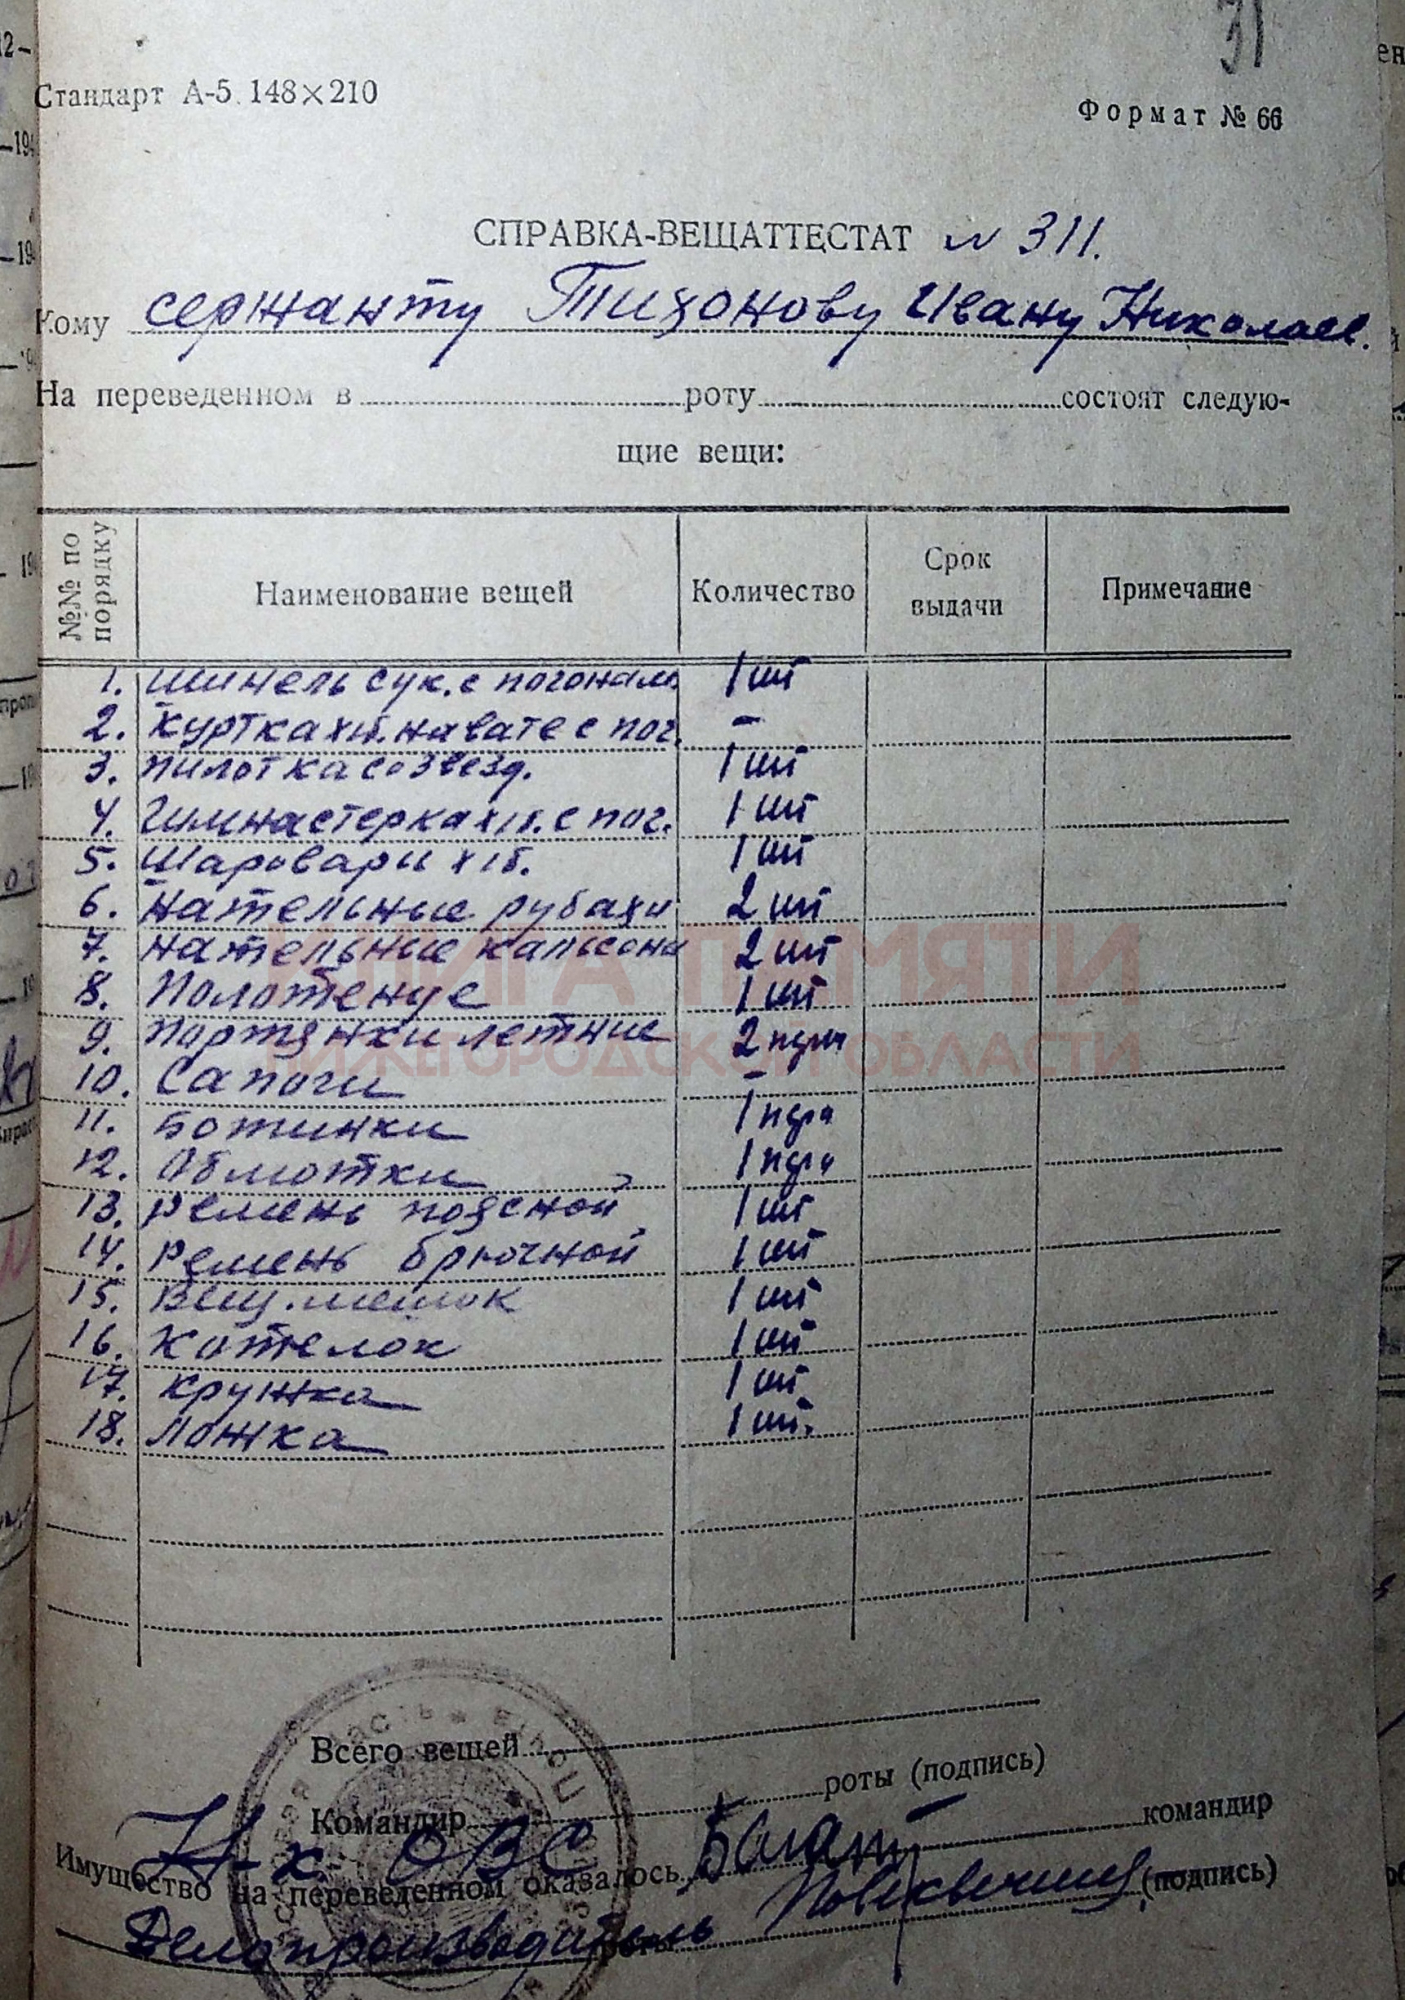 31
Стандарт А-5 148×210
Формат № 66
СПРАВКА-ВЕЩАТТЕСТАТ № 311.
Кому сержанту Тихонову Ивану Николаев.
На переведенном в роту состоят следую-
щие вещи:
№№ по порядку Наименование вещей Количество Срок выдачи Примечание
1. Шинель сук. с погонам. 1 шт
2. Куртка х/б. на вате с пог. –
3. Пилотка со звезд. 1 шт
4. Гимнастерка х/б. с пог. 1 шт
5. Шаровары х/б. 1 шт
6. Нательные рубахи 2 шт
7. Нательные кальсоны 2 шт
8. Полотенце 1 шт
9. Портянки летние 2 пары
10. Сапоги –
11. Ботинки 1 пара
12. Обмотки 1 пара
13. Ремень поясной 1 шт
14. Ремень брючной 1 шт
15. Вещ. мешок 1 шт
16. Котелок 1 шт
17. Кружка 1 шт
18. Ложка 1 шт.
КНИГА ПАМЯТИ
НИЖЕГОРОДСКОЙ ОБЛАСТИ
Всего вещей
Командир роты (подпись)
Н-к ОВС
Имущество на переведенном оказалось командир
Делопроизводитель роты (подпись)